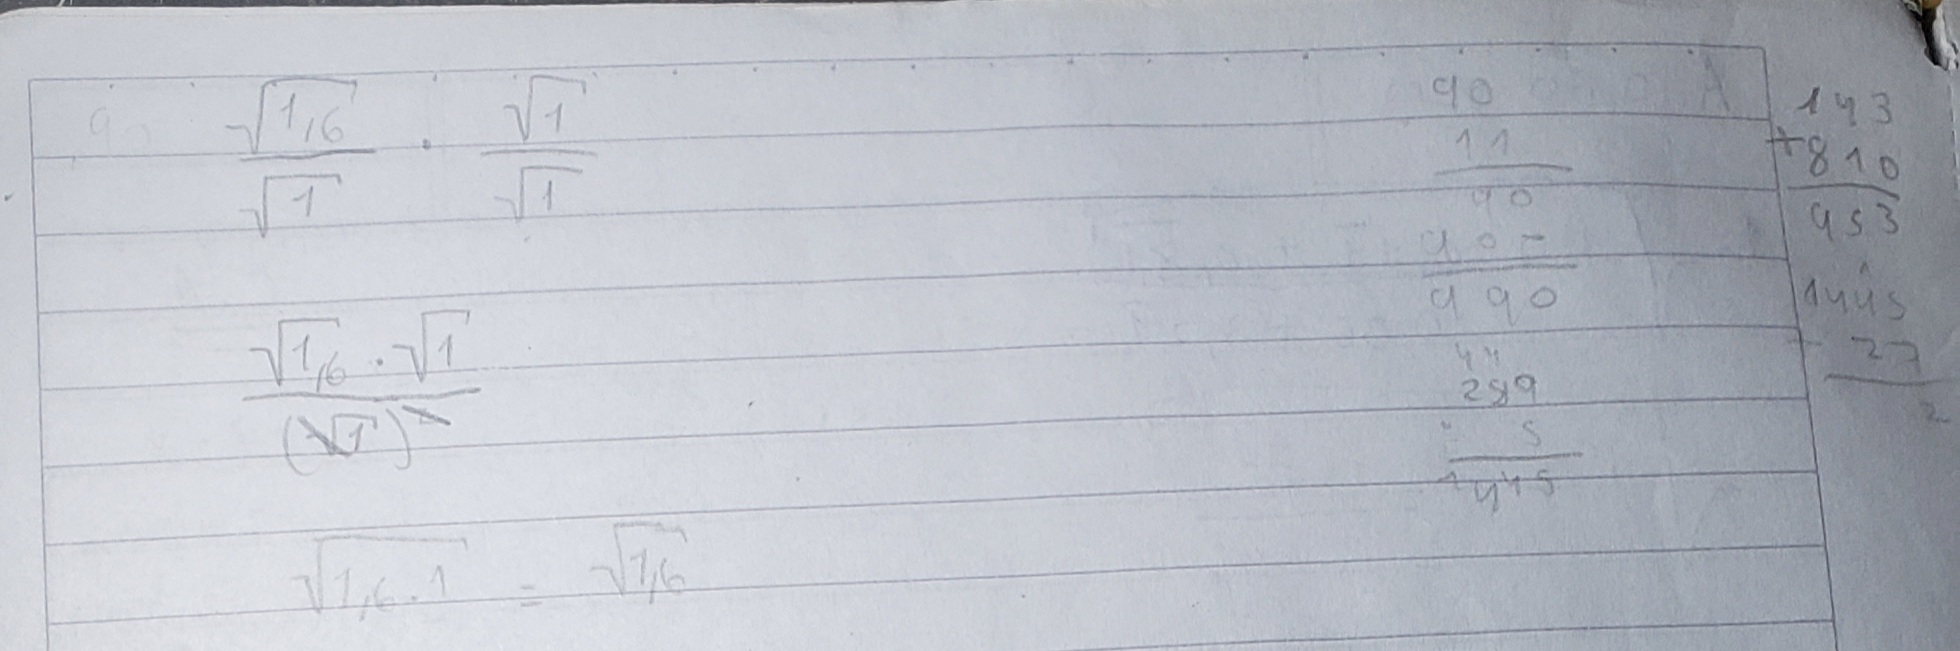 √1,6 / √1 · √1 / √1
√1,6 · √1 / (√1)²
√1,6 . 1 = √1,6
90
11
90
90-
990
44
289
5
1445
143
+810
953
1445
- 27
2